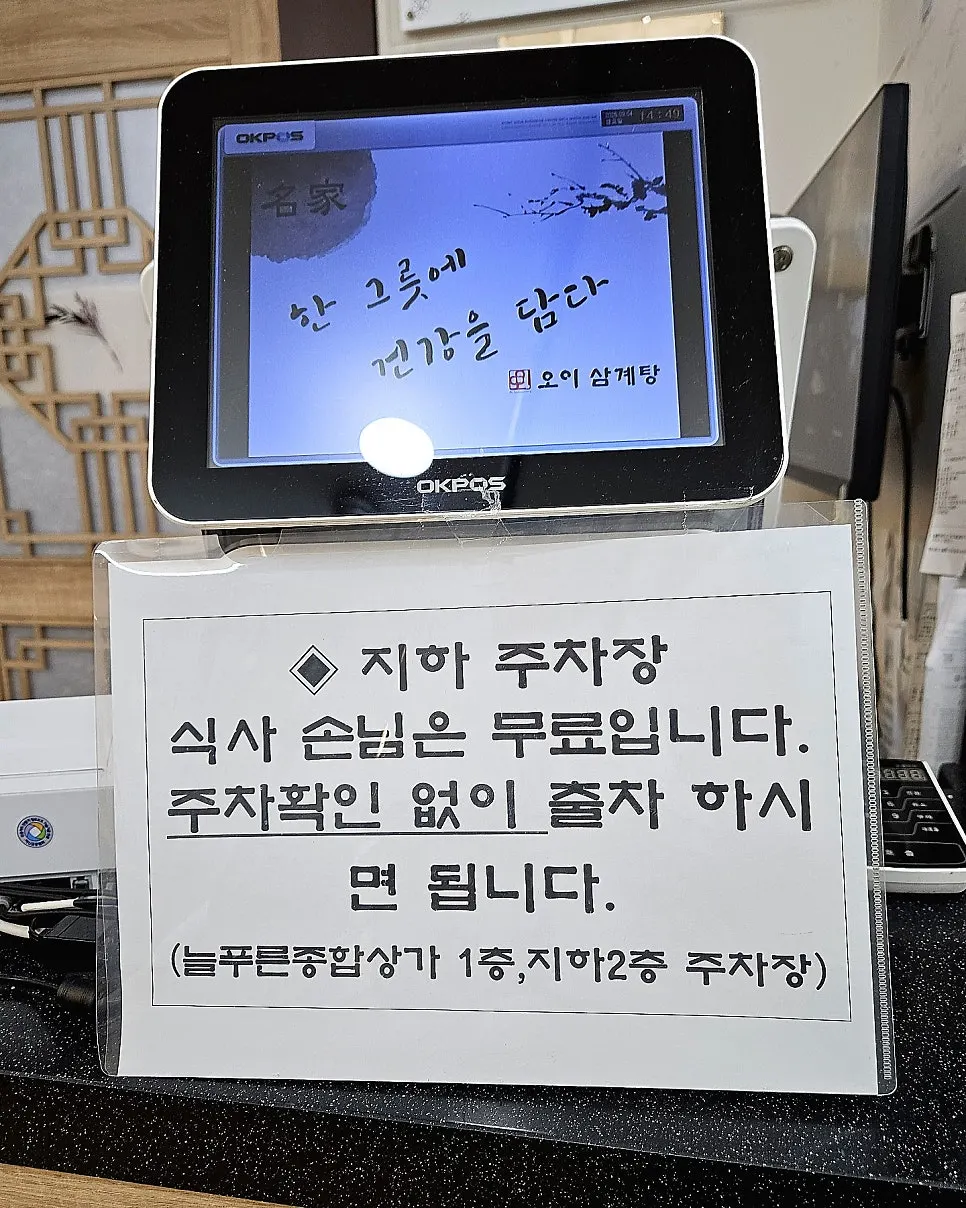 OKPOS
14:49
名家
한 그릇에
건강을 담다
오이 삼계탕
OKPOS
◈ 지하 주차장
식사 손님은 무료입니다.
주차확인 없이 출차 하시
면 됩니다.
(늘푸른종합상가 1층,지하2층 주차장)